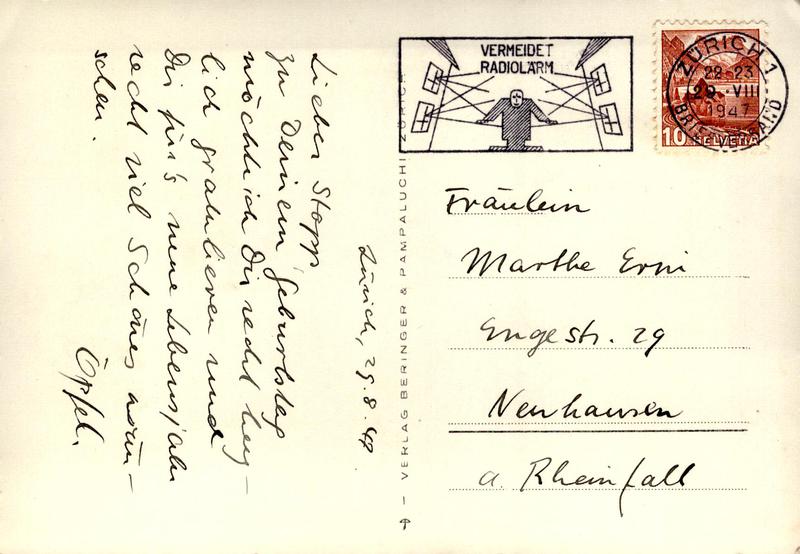 Zürich, 29.8.47
Lieber Stopp
zu Deinem Geburtstag
möchte ich Dir recht herz-
lich gratulieren und
Dir für's neue Lebensjahr
recht viel Schönes wün-
schen.
Öpfel.
- VERLAG BERINGER & PAMPALUCHI ZÜRICH
VERMEIDET
RADIOLÄRM
ZÜRICH 1
22-23
29. VIII
1947
BRIEFVERSAND
10 HELVETIA
Fräulein
Marthe Erni
Engestr. 29
Neuhausen
a. Rheinfall